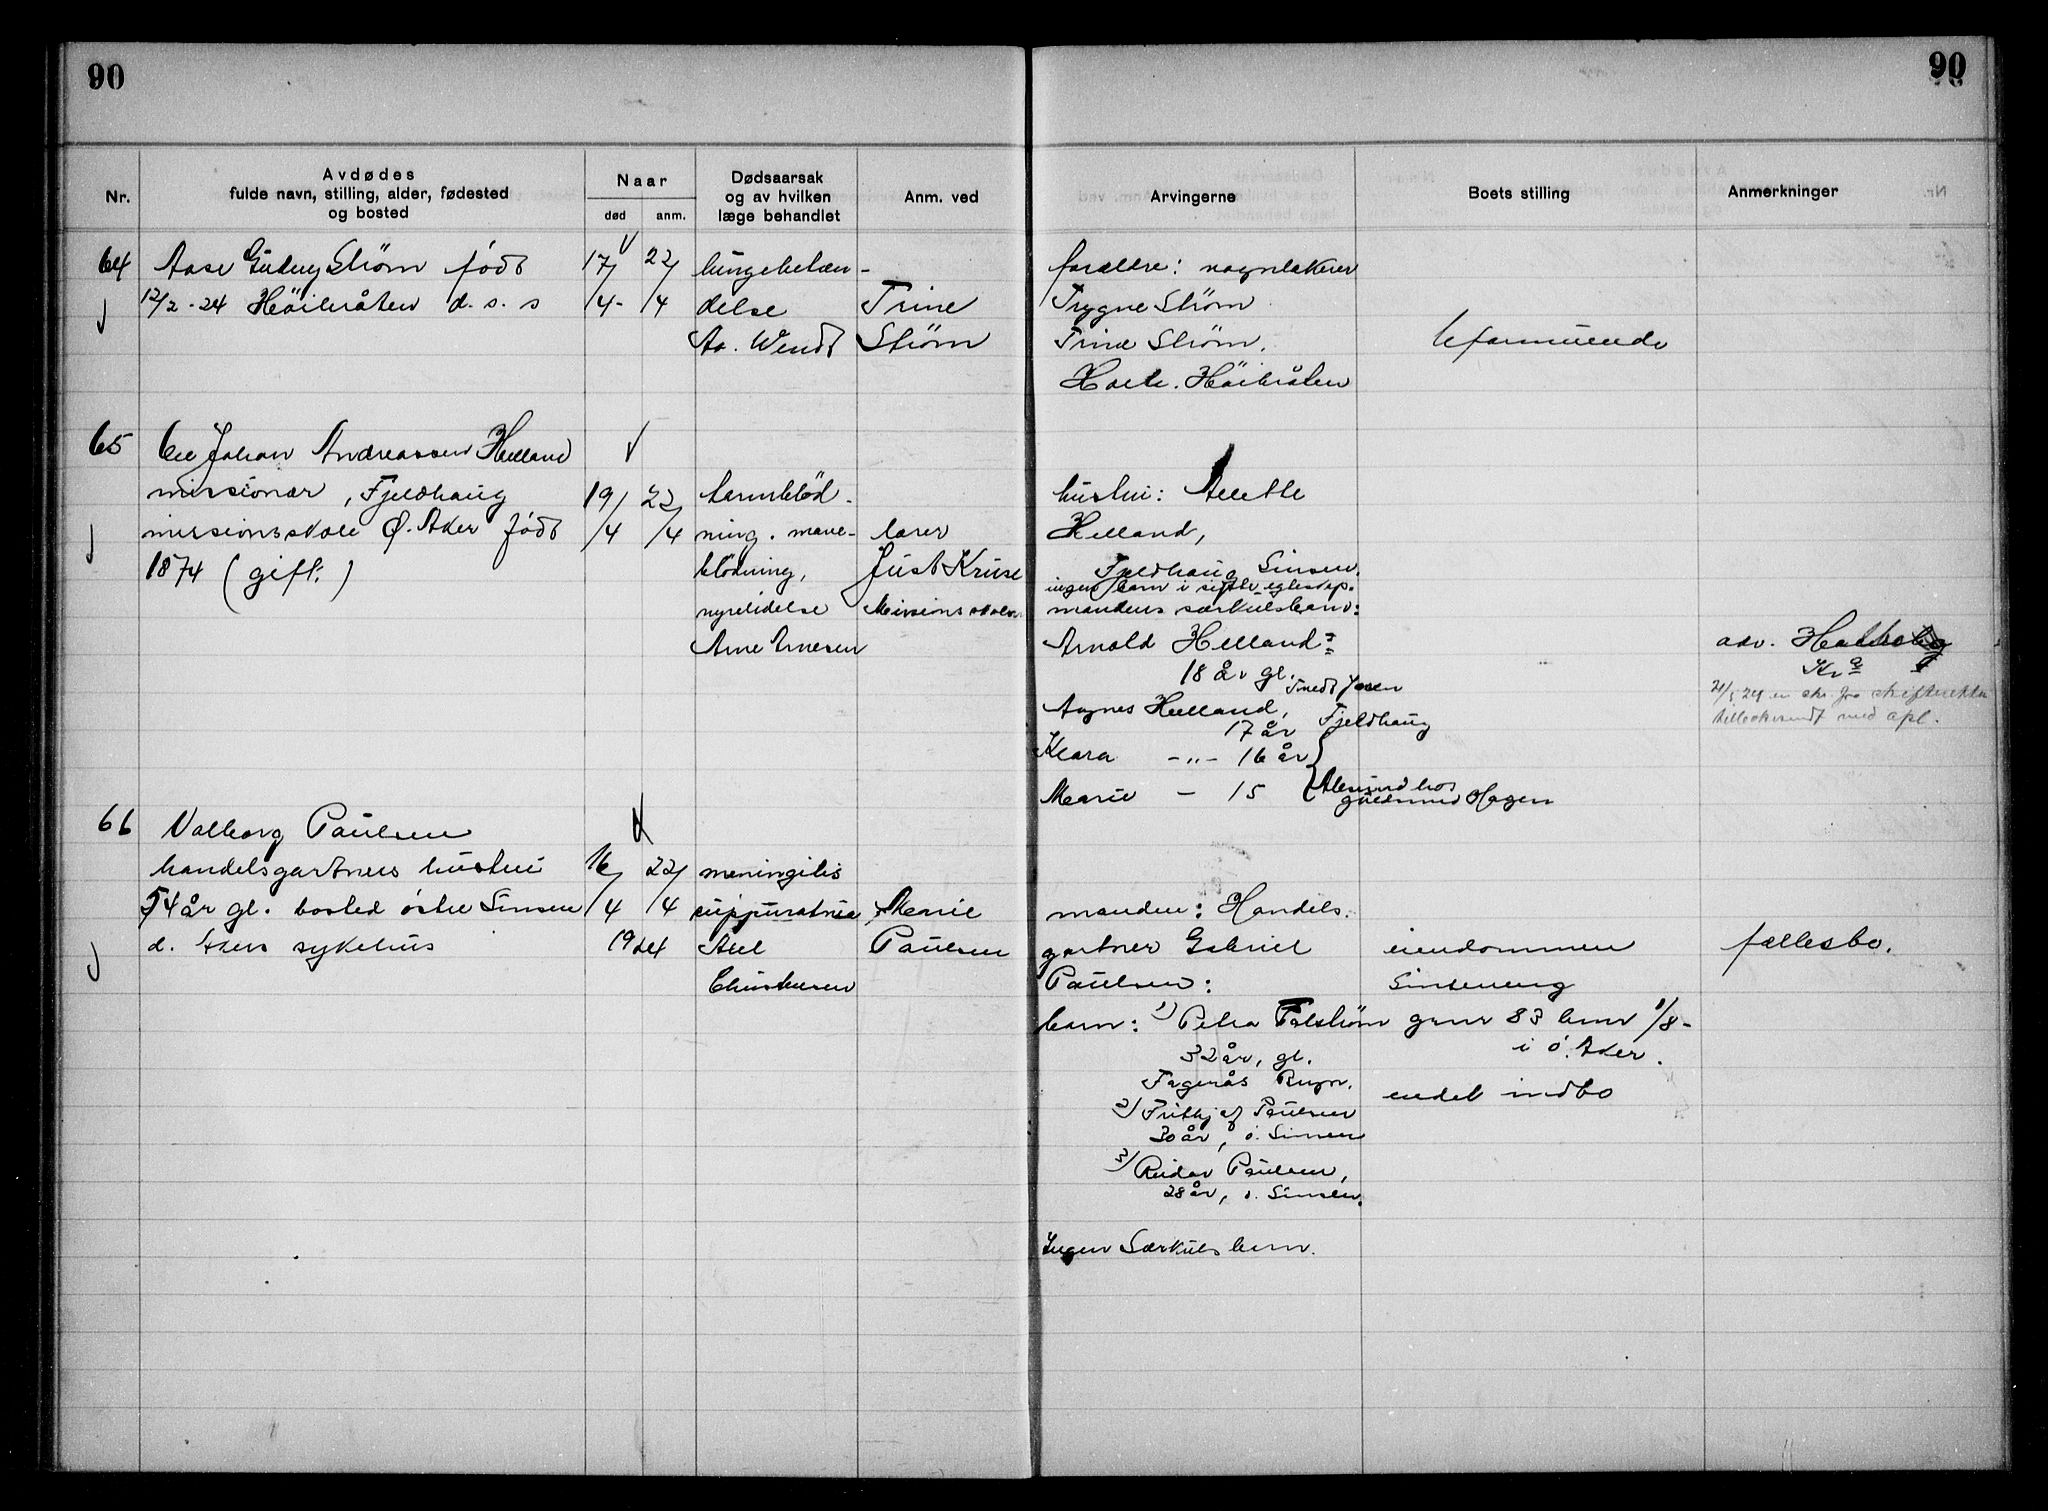 90
90
Nr.
Avdødes
fulde navn, stilling, alder, fødested
og bosted
Naar
død
anm.
Dødsaarsak
og av hvilken
læge behandlet
Anm. ved
Arvingerne
Boets stilling
Anmerkninger
64
Aase Gudny Strøm født
12/2-24 Höibråten d. s. s
17/4-
22/4
lungebetæn-
delse
Aa. Wendt
Trine
Strøm
forældre: vognlakerer
Trygve Strøm
Trine Strøm.
Höibråten
uformuende
65
Johan Andreassen Helland
missionær, Fjeldhaug
missionsskole Ø. Aker født
1874 (gift:)
19/4
22/4
tarmblød-
ning. mave-
blødning,
nyrelidelse
Arne Arnesen
lærer
Just Kruse
Missionsskolen
hustru: Anette
Helland,
Fjeldhaug Sinsen.
ingen barn i sidste egteskap.
mandens særkulsbarn:
Arnold Helland
18 år gl.
Agnes Helland,
17 år
Fjeldhaug
Klara -"- 16 år
Marie - 15
Ålesund hos
guldsmed Hagen
adv.
Kra
21/5 24 er skr. fra skifteretten
tilbakesendt med opl.
66
Valborg Paulsen
handelsgartners hustru
54 år gl. bosted østre Sinsen
d. Akers sykehus
16/4
22/4
1924
meningitis
suppurativa
Axel
Christensen
Marie
Paulsen
manden: Handels.
gartner Gabriel
Paulsen:
barn: 1) Petra
32 år, gl.
2) Frithjof Paulsen
30 år, ø. Sinsen
3) Reidar Paulsen,
28 år, ø. Sinsen.
Ingen Særkulsbarn.
eiendommen
Sinseneng
gnr 83 bnr 1/8-
i ø. Aker.
endel indbo
fællesbo.